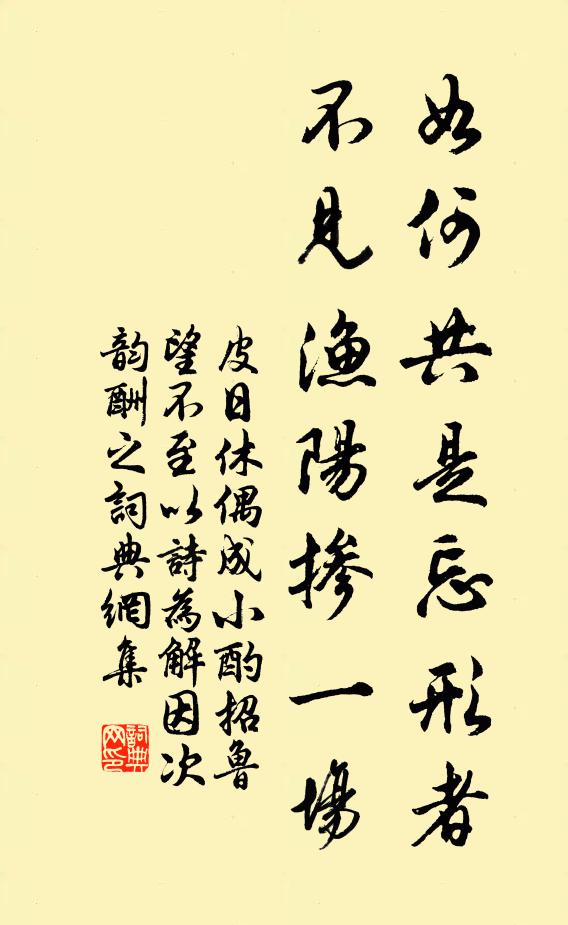 如何共是忘形者
不見漁陽摻一場
皮日休偶成小酌招魯
望不至以詩為解因次
韵酬之詞典網集
詞典
网印